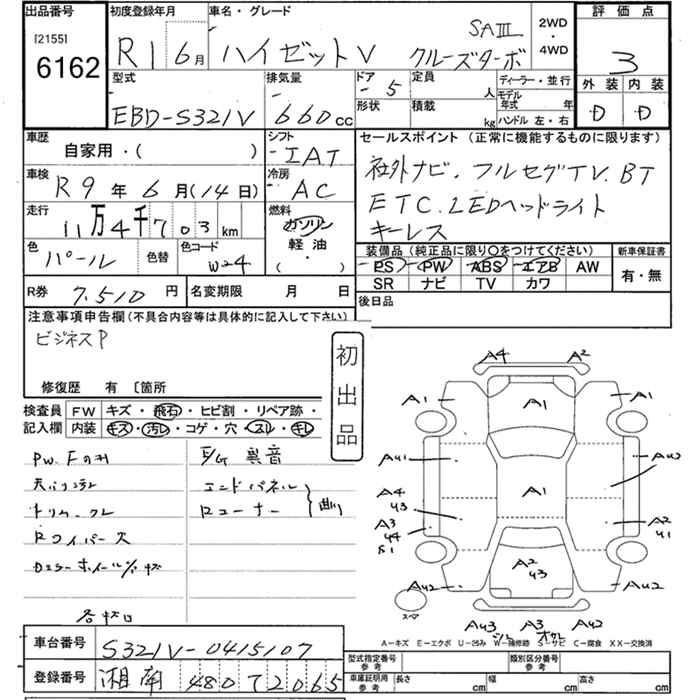 出品番号
[2155]
6162
初度登録年月
R1 6月
車名・グレード
ハイゼットV
SAⅢ
クルーズターボ
2WD
・
4WD
評価点
3
外装 内装
D D
型式
EBD-S321V
排気量
660cc
ドア
- 5
形状
定員
人
積載
kg
ディーラー・並行
モデル年式 年
ハンドル 左・右
車歴
自家用・( )
シフト
-IAT
車検
R9年6月(14日)
冷房
AC
走行
11万4千703km
燃料
ガソリン
軽油
・
( )
色
パール
色替
色コード
W24
R券
7.510円
名変期限 月 日
セールスポイント (正常に機能するものに限ります)
社外ナビ.フルセグTV.BT
ETC.LEDヘッドライト
キーレス
装備品 (純正品に限り○をつけてください)
PS PW ABS エアB AW
SR ナビ TV カワ
新車保証書
有・無
後日品
注意事項申告欄(不具合内容等は具体的に記入して下さい)
ビジネスP
修復歴 有 〔箇所
初出品
検査員記入欄
FW キズ・飛石・ヒビ割・リペア跡・
内装 キズ・汚レ・コゲ・穴・スレ・キレ
E/G 異音
エンドパネル
Rコーナー
曲り
Rワイパー欠
車台番号
S321V-0415107
登録番号
湘南 480 て 2065
A4 A2
A1 A1 A1
AU1
A4
U3
A3
U4
S1
A1
A2
U1
A2
U3
AU2 AU2
スペア
AU3 A3 AU2
A-キズ E-エクボ U-凹み W-補修跡 S-サビ C-腐食 XX-交換済
型式指定番号
参考
類別区分番号
参考
車庫証明用
参考
長さ cm
幅 cm
高さ cm